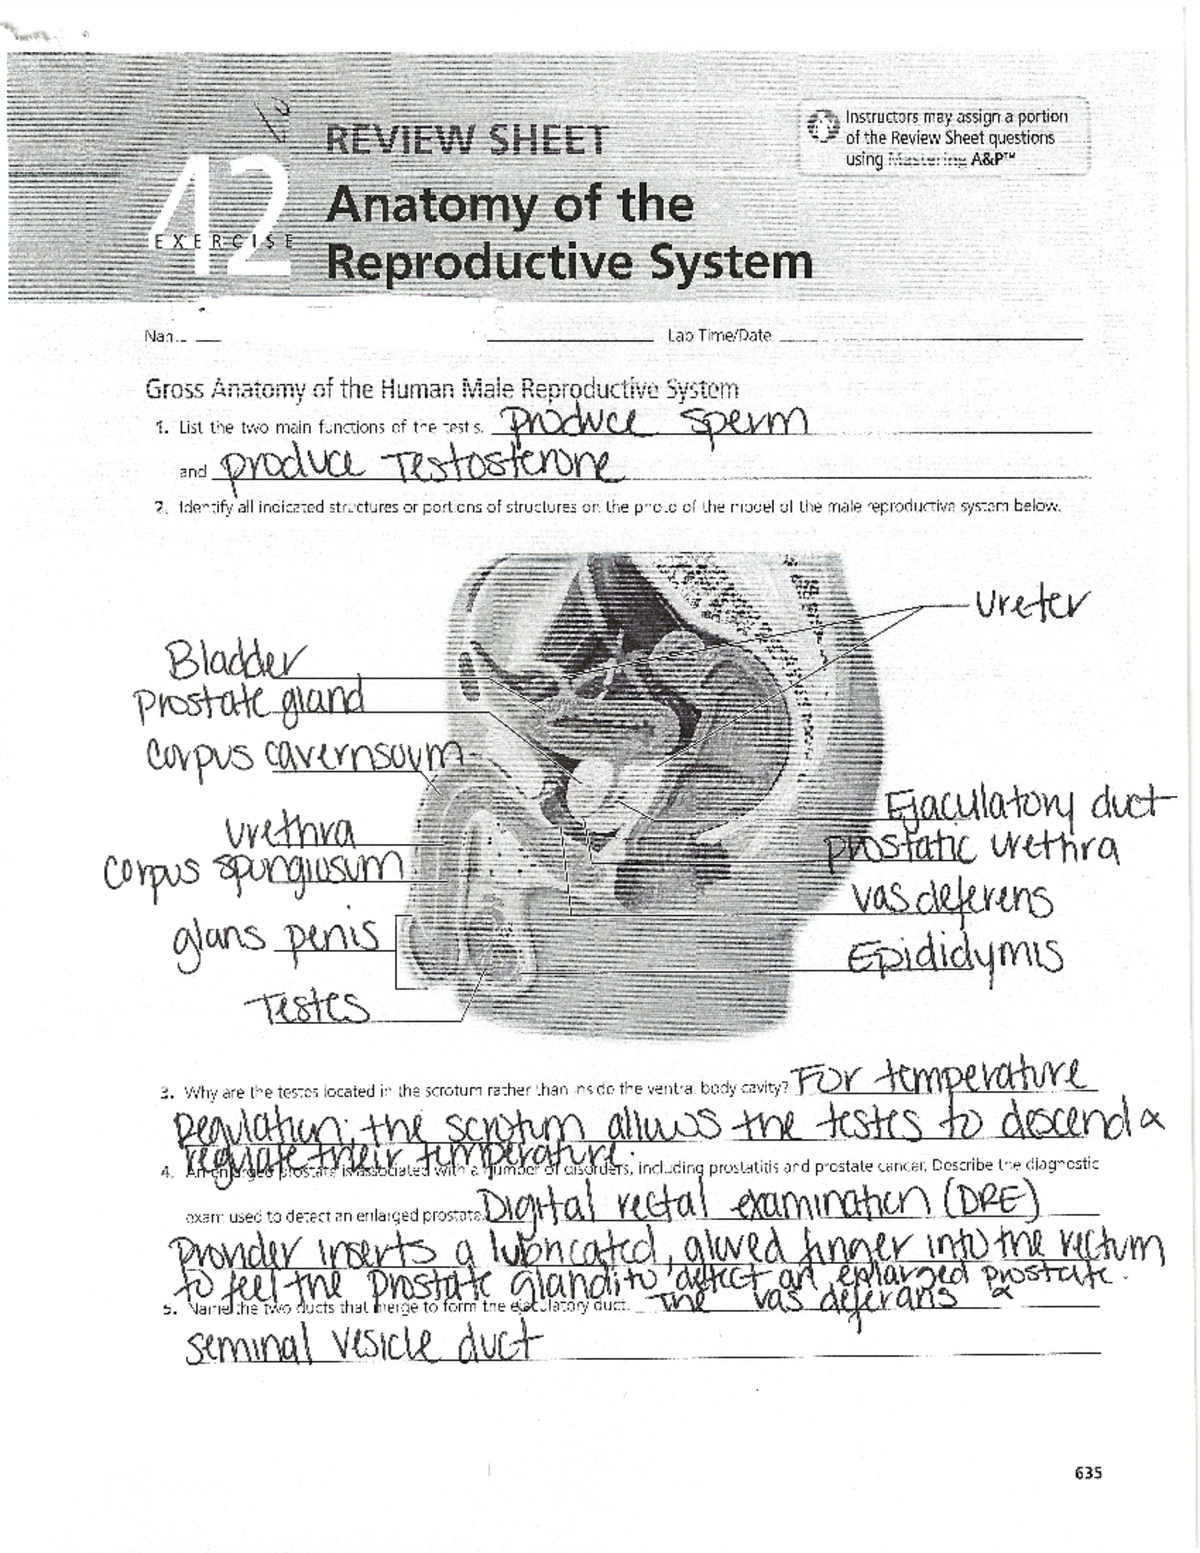 REVIEW SHEET
42
EXERCISE
Anatomy of the
Reproductive System
Instructors may assign a portion
of the Review Sheet questions
using Mastering A&P™
Lab Time/Date
Gross Anatomy of the Human Male Reproductive System
1. List the two main functions of the testis. produce sperm
and produce Testosterone
2. Identify all indicated structures or portions of structures on the photo of the model of the male reproductive system below.
ureter
Bladder
prostate gland
corpus cavernsoum
Ejaculatory duct
urethra
prostatic urethra
corpus spungiosum
vas deferens
glans penis
Epididymis
Testes
3. Why are the testes located in the scrotum rather than inside the ventral body cavity? For temperature
Regulation; the scrotum allows the testes to descend &
regulate their temperature.
4. An enlarged prostate is associated with a number of disorders, including prostatitis and prostate cancer. Describe the diagnostic
exam used to detect an enlarged prostate. Digital rectal examination (DRE)
Provider inserts a lubricated, gloved finger into the rectum
to feel the prostate gland to detect an enlarged prostate.
5. Name the two ducts that merge to form the ejaculatory duct. The vas deferans &
seminal vesicle duct
635